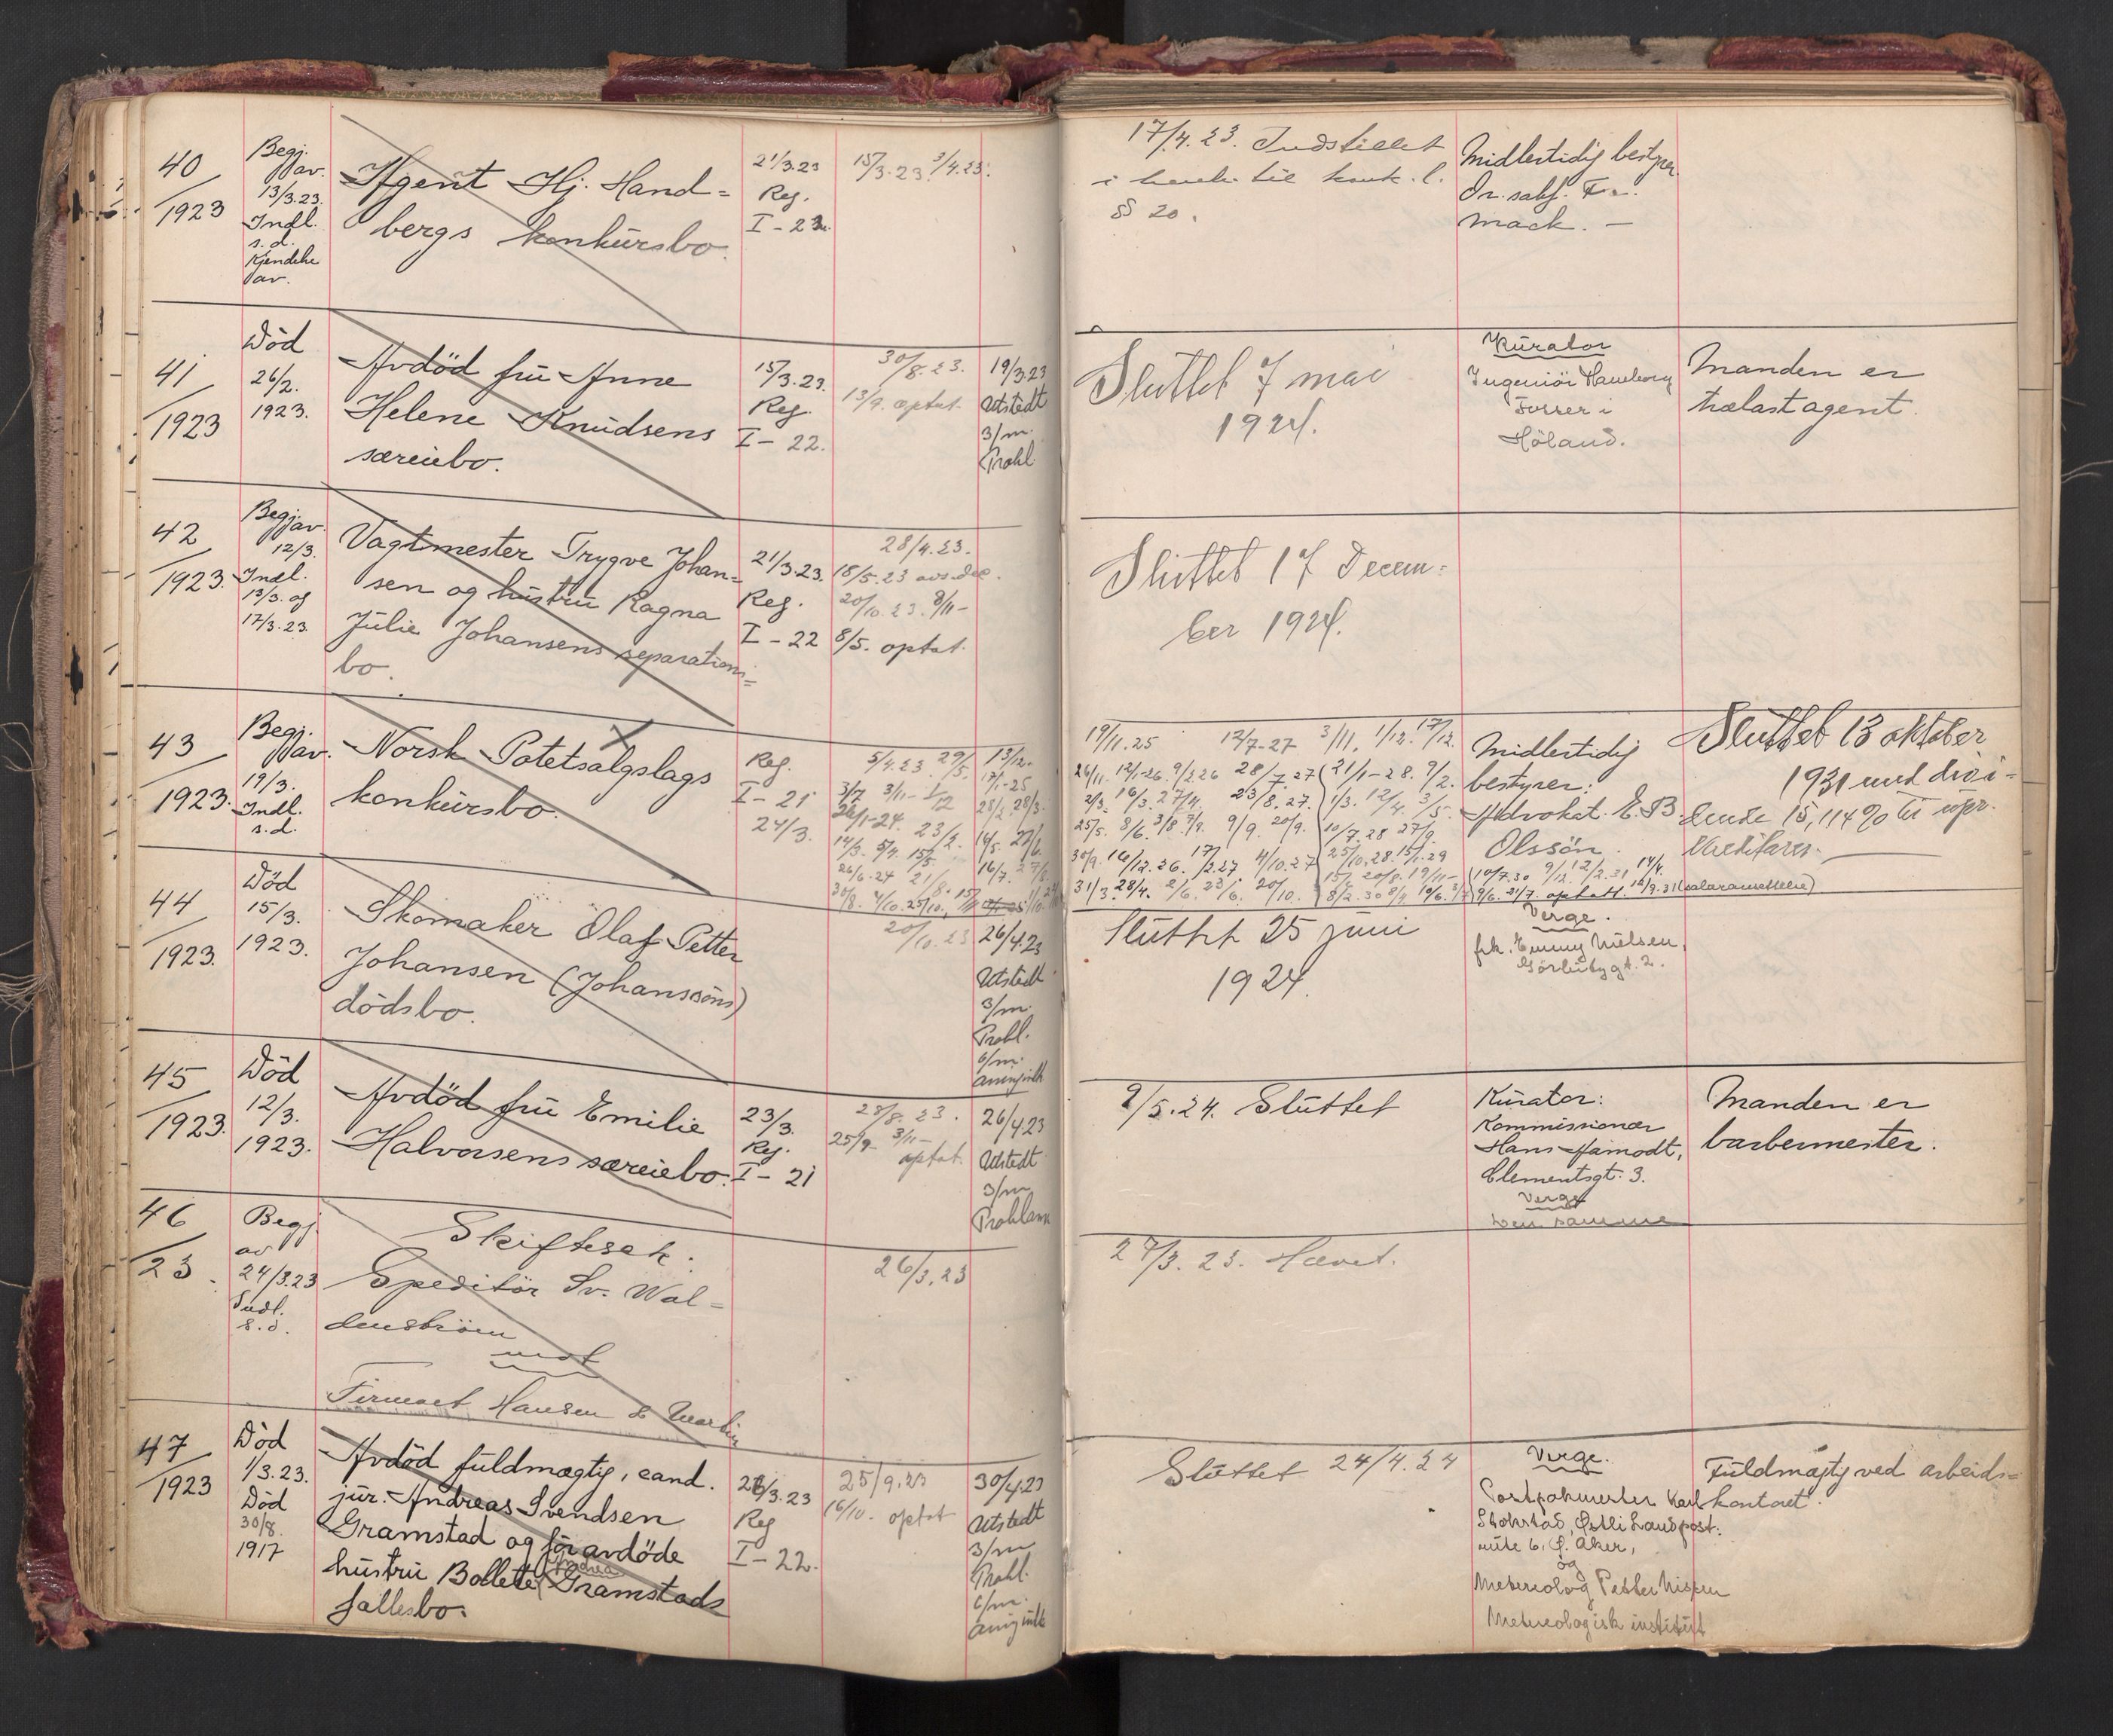 40
1923
Begj.
av.
13/3.23.
Indl.
s.d.
Kjendelse
av.
Agent Hj. Hand=
bergs konkursbo.
21/3.23
Reg.
I - 23.
15/3.23. 3/4.23.
17/4.23. Indstillet
i henh. til konk.l.
§ 20.
Midlertidig bestyrer
Or.sakf.
Mack. —
41
1923
Död
26/2.
1923.
Avdöd fru Anne
Helene Knudsens
særeiebo.
15/3.23.
Reg.
I - 22.
30/8.23.
13/9. optat.
19/3.23
Utstedt
3/m.
Prokl.
Sluttet 7 mai
1924.
Kurator
Ingeniör Hamborg
Fosser i
Höland.
Manden er
trælastagent.
42
1923.
Begj. av.
12/3.
Indl.
13/3. og
17/3.23.
Vagtmester Trygve Johan=
sen og hustru Ragna
Julie Johansens separations=
bo.
21/3.23.
Reg.
I - 22
28/4.23.
18/5.23 avs.
20/10.23. 8/11-
8/5. optat.
Sluttet 17 Decem=
ber 1924.
43
1923.
Begj.
av.
19/3.
Indl.
s.d.
Norsk Potetsalgslags
konkursbo.
Reg.
I - 21
24/3.
5/4.23. 29/5. 13/12.
3/7 3/11- 1/12 17/1-25
19/11.25 12/7-27 3/11. 1/12. 17/12.
26/11. 12/1-26. 9/2.26 28/7.27 21/1-28. 9/2.
2/3. 16/3. 27/4. 23/8.27. 1/3. 12/4. 3/5.
25/5. 8/6. 3/8. 7/9. 9/9. 20/9. 10/7.28 27/9.
30/9. 16/12.26. 17/2.27. 4/10.27 25/10.28. 15/1.29
31/3. 28/4. 2/6. 23/6. 20/10.
Midlertidig
bestyrer:
Advokat E.B.
Olssön.
10/7.30 9/12. 12/2.31 14/4.
9/6. 21/7. optatt. 16/9.31 (salæransettelse)
Sluttet 13 oktober
1931 med divi=
dende 15,114 % til upr.
kreditorer.
44
1923.
Död
15/3.
1923.
Skomaker Olaf Petter
Johansen (Johanssöns)
dödsbo.
20/10.23
26/4.23
Utstedt
3/m.
Prokl.
6/m.
Sluttet 25 juni
1924.
Verge.
frk. Emmy Nielsen,
Görbitzgt. 2.
45
1923.
Död
12/3.
1923.
Avdöd fru Emilie
Halvorsens særeiebo.
23/3.
Reg.
I - 21
28/8.23.
25/9- 3/11-
optat.
26/4.23
Utstedt
3/m
Proklama
9/5.24. Sluttet
Kurator:
Kommissionær
Hans Aamodt,
Clementsgt. 3.
Verge
den samme
Manden er
barbermester.
46
23.
Begj.
av
24/3.23
Indl.
s.d.
Skiftesak:
Speditör Sv. Wal=
denström
mot
Firmaet Hansen & Martin
26/3.23
27/3.23. Hævet.
47
1923
Död
1/3.23.
Död
30/8.
1917
Avdöd fuldmægtig, cand.
jur. Andreas Svendsen
Gramstad og för avdöde
Andrea
hustru Bollette Gramstads
fællesbo.
26/3.23
Reg
I - 22.
25/9.23
16/10. optat
30/4.23
Utstedt
3/m
Prokl.
6/m.
Sluttet 24/4.24
Verge.
Postpakmester Karl
Stokstad, Østli Landpost:
rute 6, Ø. Aker,
og
Metereolog Petter Nissen
Metereologisk institut
Fuldmægtig ved arbeids=
kontoret.